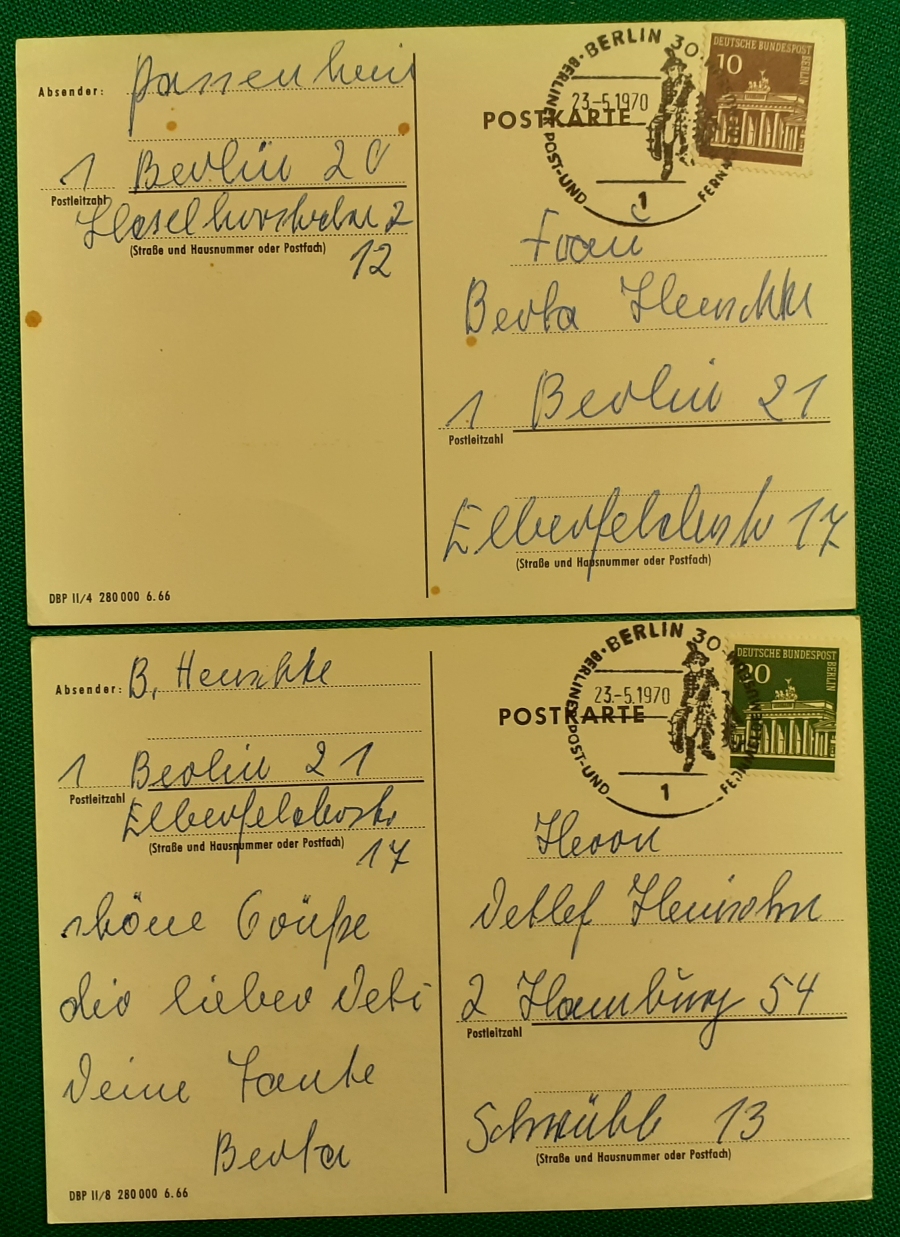 Absender:
1 Berlin 20
Postleitzahl
(Straße und Hausnummer oder Postfach)
12
DBP II/4 280 000 6.66
BERLIN 30
BERLINER POST-UND
23.-5.1970
1
DEUTSCHE BUNDESPOST
BERLIN
10
POSTKARTE
Frau
Berta Henschke
1 Berlin 21
Postleitzahl
Elberfelderstr 17
(Straße und Hausnummer oder Postfach)
Absender: B. Henschke
1 Berlin 21
Postleitzahl
Elberfelderstr.
(Straße und Hausnummer oder Postfach)
17
schöne Grüße
dir lieber Deti
Deine Tante
Berta
DBP II/8 280 000 6.66
BERLIN 30
BERLINER POST-UND
23.-5.1970
1
DEUTSCHE BUNDESPOST
BERLIN
20
POSTKARTE
Herrn
Detlef
2 Hamburg 54
Postleitzahl
13
(Straße und Hausnummer oder Postfach)